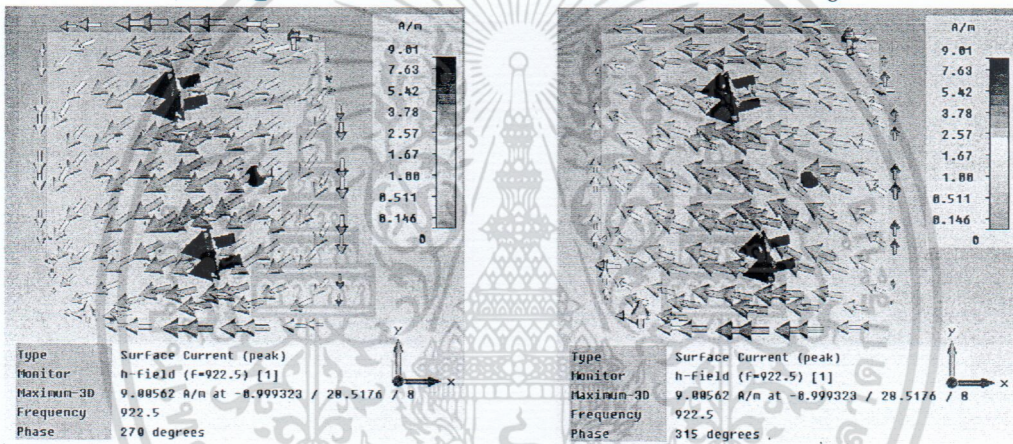 A/m
9.01
7.63
5.42
3.78
2.57
1.67
1.00
0.511
0.146
0
y
x
Type Surface Current (peak)
Monitor h-field (f=922.5) [1]
Maximum-3D 9.00562 A/m at -0.999323 / 20.5176 / 8
Frequency 922.5
Phase 270 degrees
A/m
9.01
7.63
5.42
3.78
2.57
1.67
1.00
0.511
0.146
0
y
x
Type Surface Current (peak)
Monitor h-field (f=922.5) [1]
Maximum-3D 9.00562 A/m at -0.999323 / 20.5176 / 8
Frequency 922.5
Phase 315 degrees